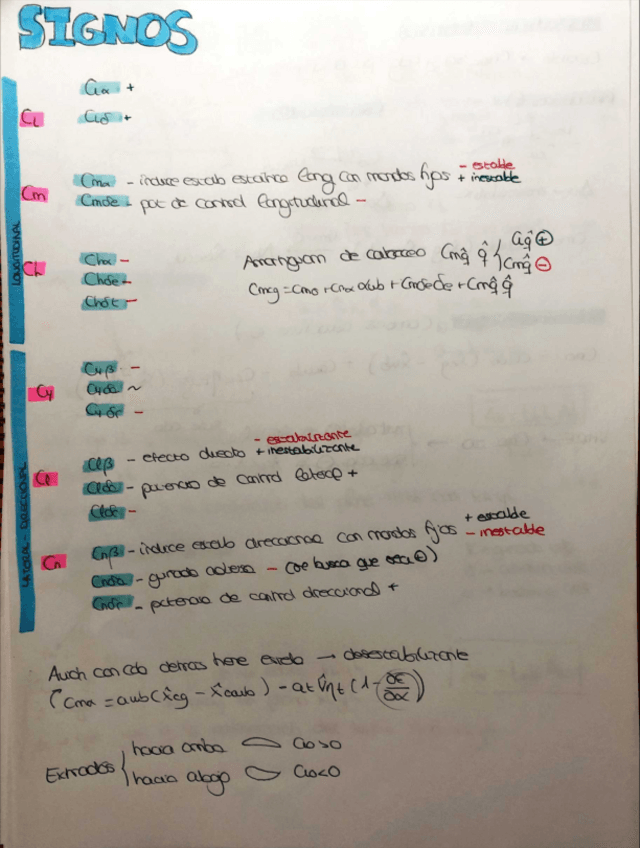 SIGNOS
CLα +
CL CLδ +
Cm Cmα - índice estab estática long con mandos fijos - estable + inestable
Cmδe - pot de control longitudinal -
LONGITUDINAL
Ch Chα -
Chδe -
Chδt -
Amortiguam de cabeceo Cmq̂ q̂ { CLq̂ ⊕ Cmq̂ ⊖
Cmcg = Cmo + Cmα αwb + Cmδe δe + Cmq̂ q̂
Cyβ -
Cy Cyδa ~
Cyδr -
LATERAL - DIRECCIONAL
Cl Clβ - efecto diedro - estabilizante + inestabilizante
Clδa - potencia de control lateral +
Clδr -
Cn Cnβ - índice estab direccional con mandos fijos + estable - inestable
Cnδa - guiñada adversa - (se busca que sea ⊕)
Cnδr - potencia de control direccional +
canard detrás → desestabilizante
(Cmα = awb (x̂cg - x̂cawb) - at V̂ηt (1 - ∂ε/∂α))
Extradós { hacia arriba
hacia abajo